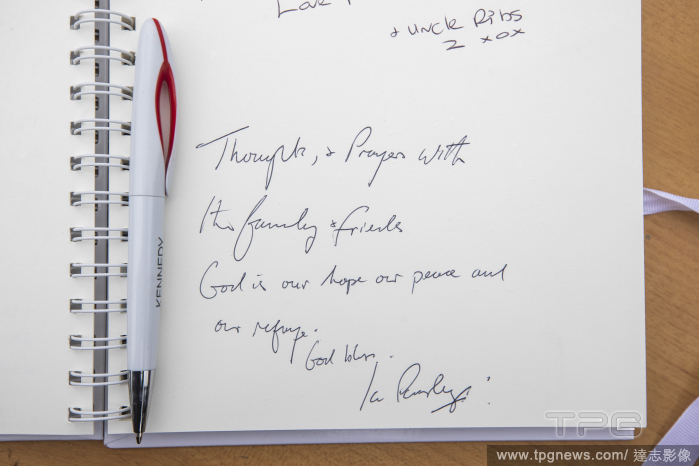 Love
& Uncle Ribs
2 xox
Thoughts, & Prayers with
the family & friends
God is our hope our peace and
our refuge.
God bless.
Ian Paisley
KENNEDY
TPG
www.tpgnews.com/ 達志影像